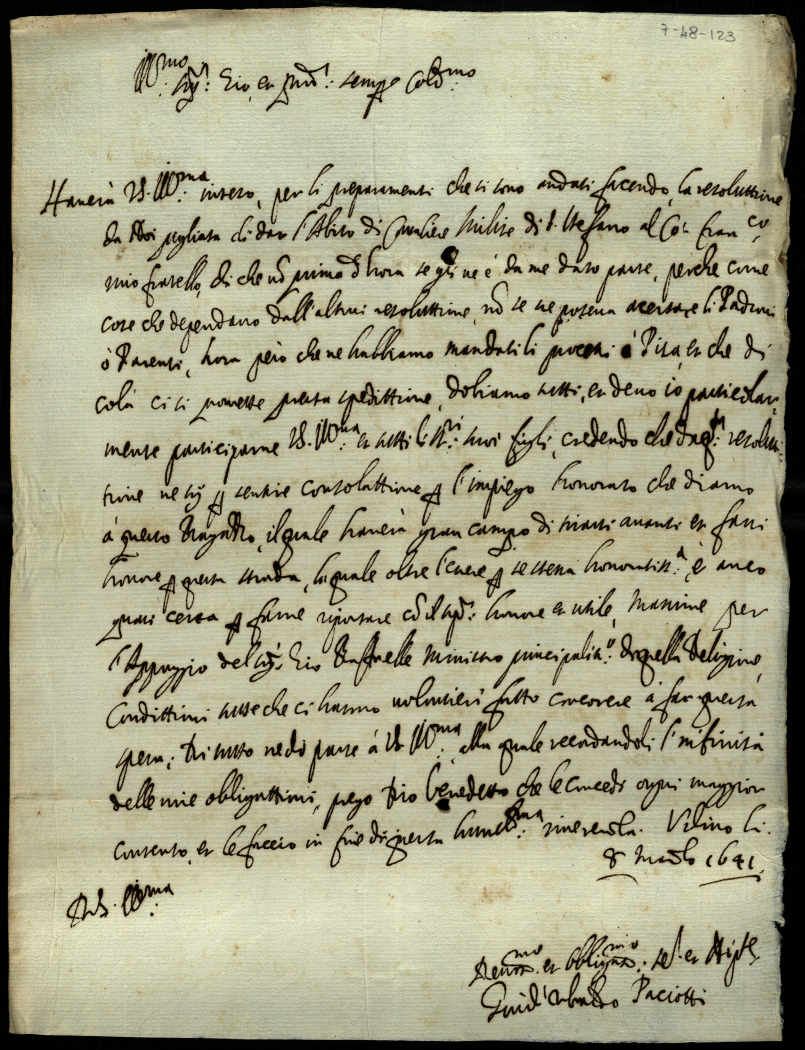 7-48-123
Ill:mo
Sig:r Zio, et prõn: sempe Cold:mo
Haverà VS. Ill:ma inteso, per li preparamenti che si sono andati facendo, la resoluttione
da Noi pigliata di dar l'Abito di Cavaliere Milite di S. Steffano al Co: Fran:co
mio fratello, di che nõ prima d'hora se gli ne è da me dato parte, perche come
cose che dependano dall'altrui resoluttione, nõ se ne poteva accertare li Padroni
ò Parenti, hora però che ne habbiamo mandati li processi à Pisa, et che di
colà ci si promette presta spedittione, dobiamo tutti, et devo io particolar,
mente participarne VS. Ill:ma et tutti li SS:ri suoi figli, credendo che da q:ta resolut,
tione ne sij p sentire consolattione p l'impiego honorato che diamo
à questo Ragazzo, il quale haverà gran campo di tirarsi avanti et farsi
honore p questa strada, la quale oltre l'essere p se stessa honoratiss:a, è anco
quasi certa p farne riportare cõ il tẽp: honore et utile, massime per
l'Appoggio del Sig:r Zio Raffaelle Ministro principaliss:o di quella Religione,
Condittioni tutte che ci hanno volontieri fatto correre à far questa
spesa; Di tutto ne dò parte à VS. Ill:ma, alla quale recordandoli l'infinità
delle mie obligattioni, prego Dio benedetto che le conceda ogni maggior
contento, et le faccio in fine di questa humiliss:ma riverenza. Urbino li
8 Marzo 1641.
Di VS. Ill:ma
Devot:mo et obbligat:mo se:r et Nipõte
Guid'Ubaldo Paciotti